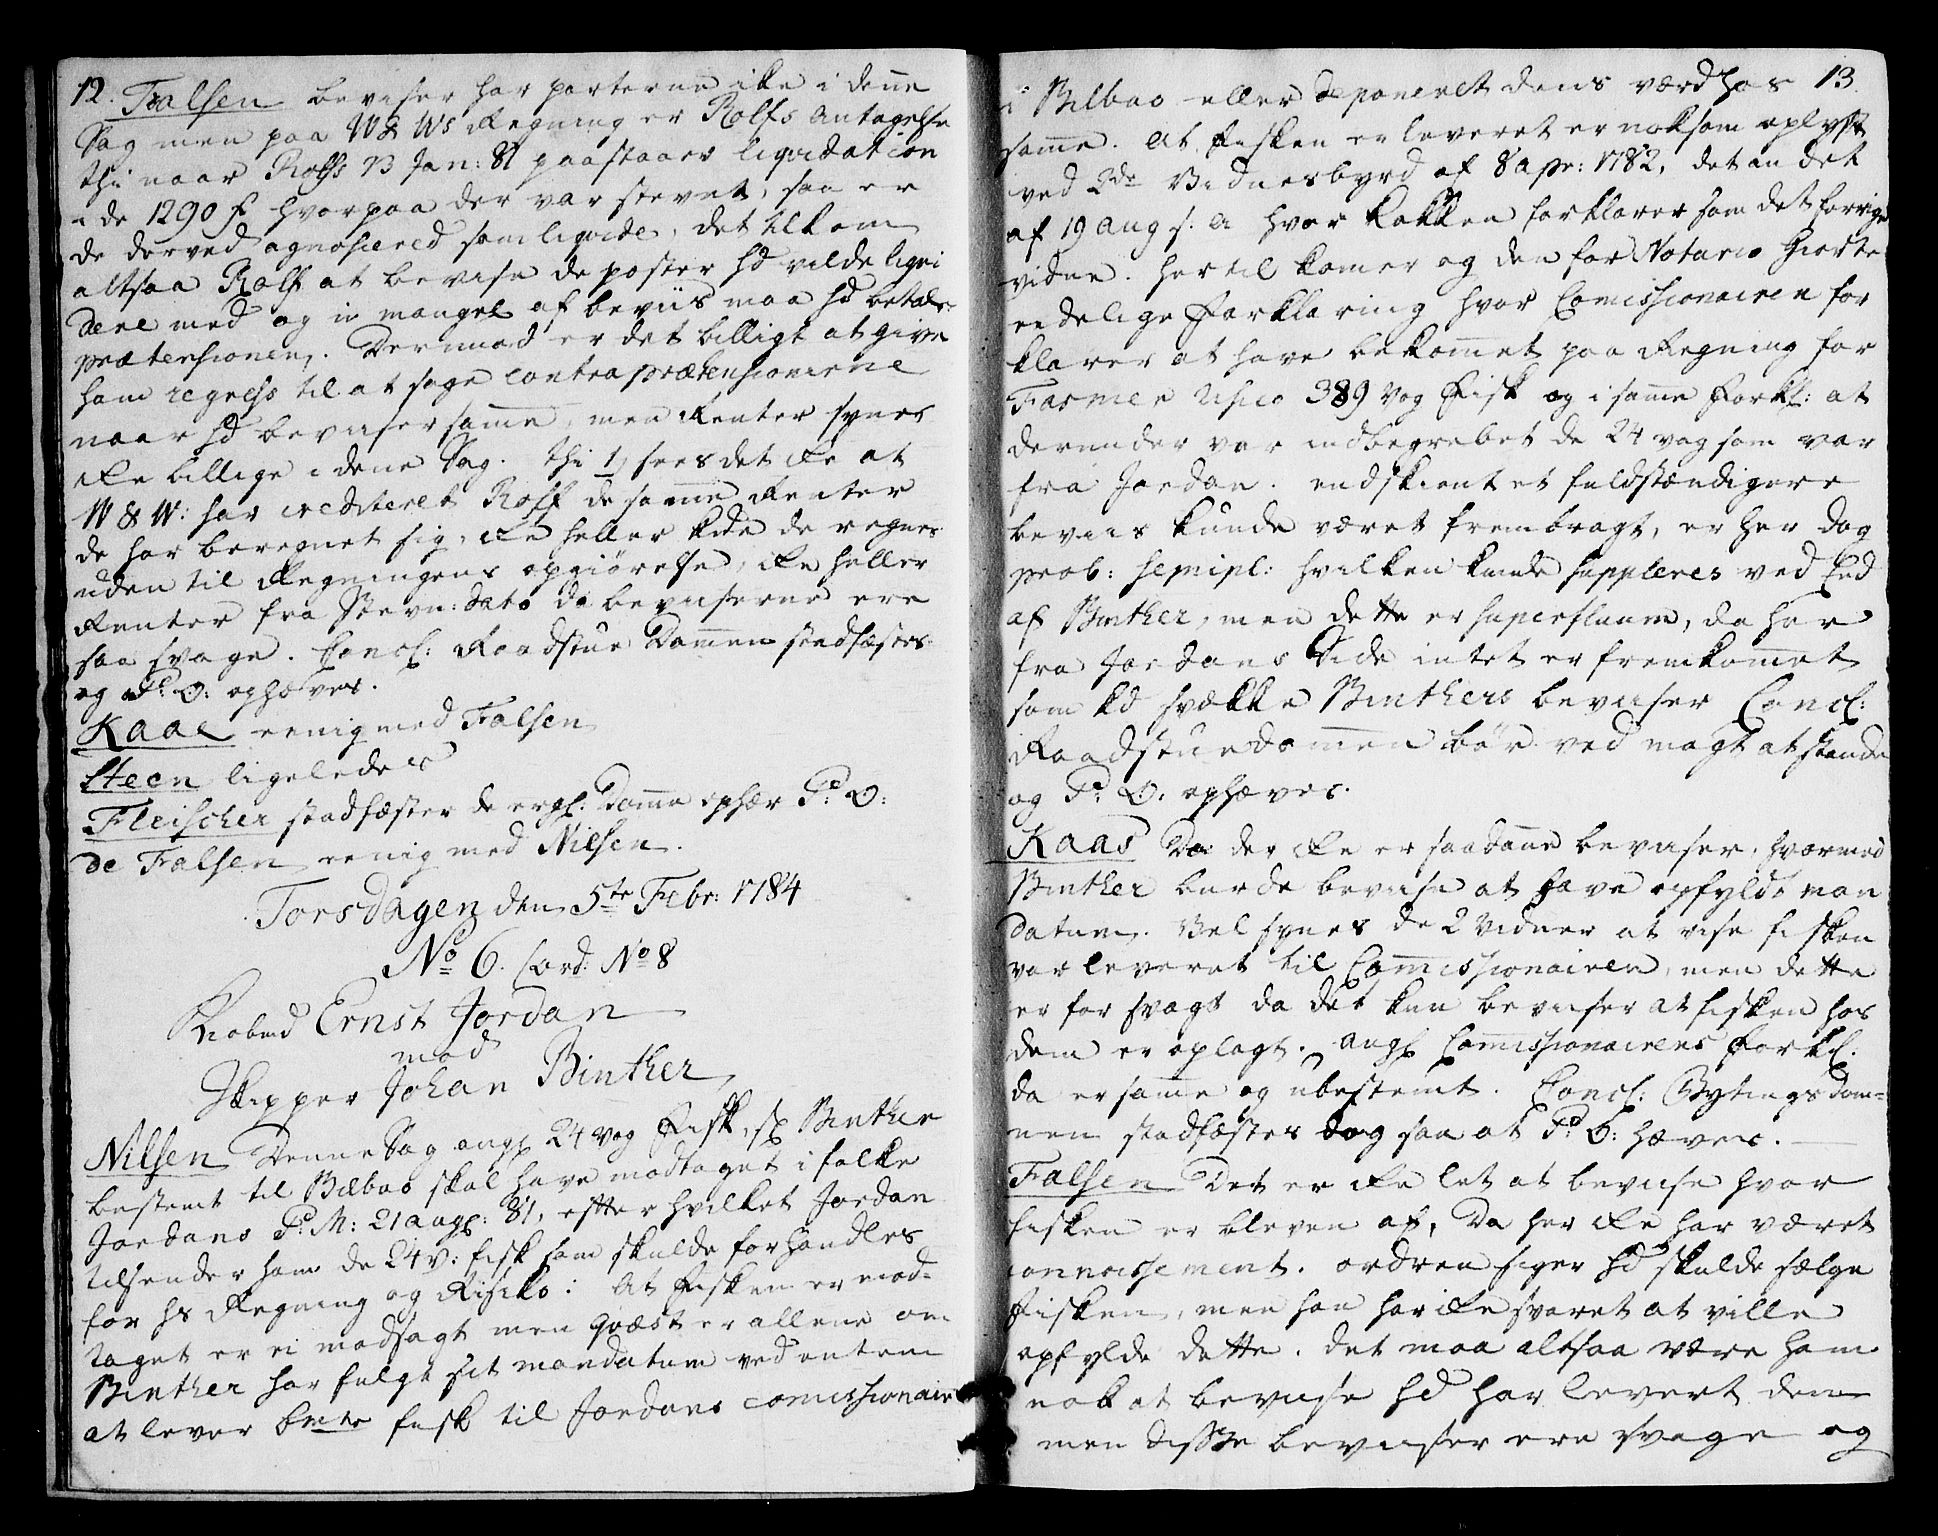 12. Falsen beviser har parterne ike i denne
Sag men paa W & Ws Regning er Rolfs Antagelse
thi naar Rolfs 13 Jan: 81 paastaaer liqvidation
i de 1290 hvorpaa der var stevnet, saa er
de derved agnoscered som liqvide, det tilkom
altsaa Rolf at bevise de poster hd vilde liqvi
dere med og in mangel af beviis maa hd betale
prætensionen. Dermed er det billigt at give
ham regress til at søge contraprætensionerne
naar hd beviser samme, men Renter synes
ike billige i denne Sag. thi 1) sees det ike at
W & W: har crediteret Rolf de samme Renter
de har beregnet sig, ike heller kde de regnes
uden til Regningens opgiørelse, ike heller
Renter fra Stevn: dato da beviserne ere
saa svage. Concl: Raadstue Dommen stadfæstes
og P: O: ophæves.
Kaas eenig med Falsen
Steen ligeledes
Fleischer stadfæster de ergl: Domme ophær P: O:
de Falsen eenig med Nilsen.
Torsdagen den 5te Febr: 1784
No 6. Cord: No 8
Kiøbmd Ernst Jordan
mod
Skipper Johan Binther
Nilsen Denne Sag ang 24 vog Fisk, s Binther
bestemt til Bilbao skal have modtaget i følke
Jordans P. M: 21 aug: 81, efter hvilket Jordan
tilsender ham de 24 v: fisk som skulde forhandles
for hs Regning og Risiko: At Fisken er mod-
taget er ei modsagt men qvæst er allene om
Binther har fulgt sit mandatum ved enten
at lever bmte fisk til Jordans comissionair
13.
i Bilbao eller deponeret dens værd hos
samme. At Fisken er leveret er noksom oplyst
ved 2de Vidnesbyrd af 8 apr: 1782, det andet
af 19 aug s. a hvor Kokken forklarer som det forrige
vidne. hertil komer og den for Notario giorte
eedelige Forklaring hvor Comissionairen for
klarer at have bekommet paa Regning for
Fasmer Usico 389 Vog Fisk og i samme Forkl: at
derunder var indbegrebet de 24 vog som var
fra Jordan. endskiønt et fuldstændigere
beviis kunde været frembragt, er her dog
prob: semipl: hvilken kunde suppleres ved Eed
af Binther, men dette er superfluum, da her
fra Jordans Side intet er fremkommet
som kd svække Binthers beviser Concl:
Raadstuedommen bør ved magt at stande
og P: O: ophæves.
Kaas Da der ike er saadanne beviser, hvormed
Binther burde bevise at have opfyldt man
datum. Vel synes de 2 Vidner at vise fisken
var leveret til Commissionairen, men dette
er for svagt da det kun beviser at fisken hos
dem er oplagt. ang Comissionairens Forkl.
da er samme og ubestemt. Concl: Bytings dom-
men stadfæstes dog saa at P: O: hæves.
Falsen Det er ike let at bevise hvor
fisken er bleven af, da her ike har været
connoissement. ordren siger hd skulde sælge
fisken, men han har ike svaret at ville
opfylde dette. det maa altsaa være ham
nok at bevise hd har levert dem
men disse beviser ere svage og